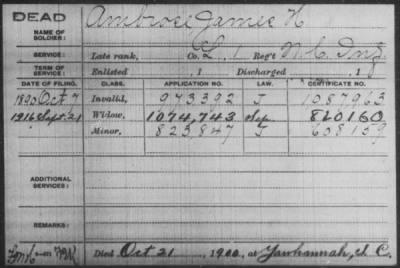 DEAD
NAME OF SOLDIER: Ambrose, Jamie H
SERVICE: Late rank, Co. L, 1 Reg't N.C. Inf.
TERM OF SERVICE: Enlisted , 1 Discharged , 1
DATE OF FILING. CLASS. APPLICATION NO. LAW. CERTIFICATE NO.
1890 Oct 7 Invalid, 973,392 J 1087963
1916 Sept. 21 Widow, 1074,743 Sep. 810160
Minor, 823,847 J 608159
ADDITIONAL SERVICES:
REMARKS:
Died Oct 21, 1900, at Yawhannah, S.C.